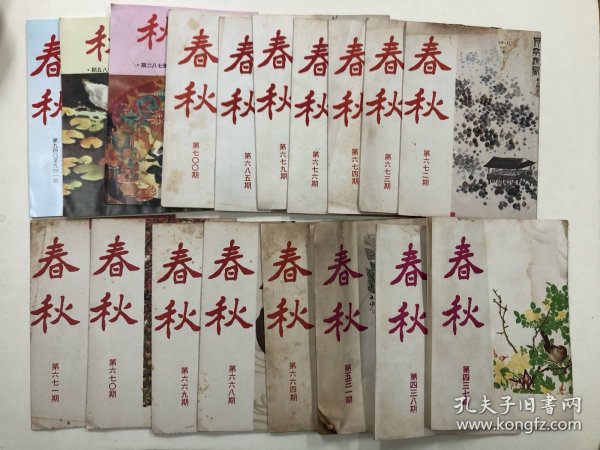 春秋
第九四〇至九四一期
秋
八五期·
秋
七八二期·
春秋
第七〇〇期
春秋
第六八五期
春秋
第六七九期
春秋
第六七六期
春秋
第六七四期
春秋
第六七三期
春秋
第六七二期
春秋
第六七一期
春秋
第六七〇期
春秋
第六六九期
春秋
第六六八期
春秋
第六六四期
春秋
第五三一期
春秋
第四三八期
春秋
第四三七期
孔夫子旧书网
www.kongfz.com